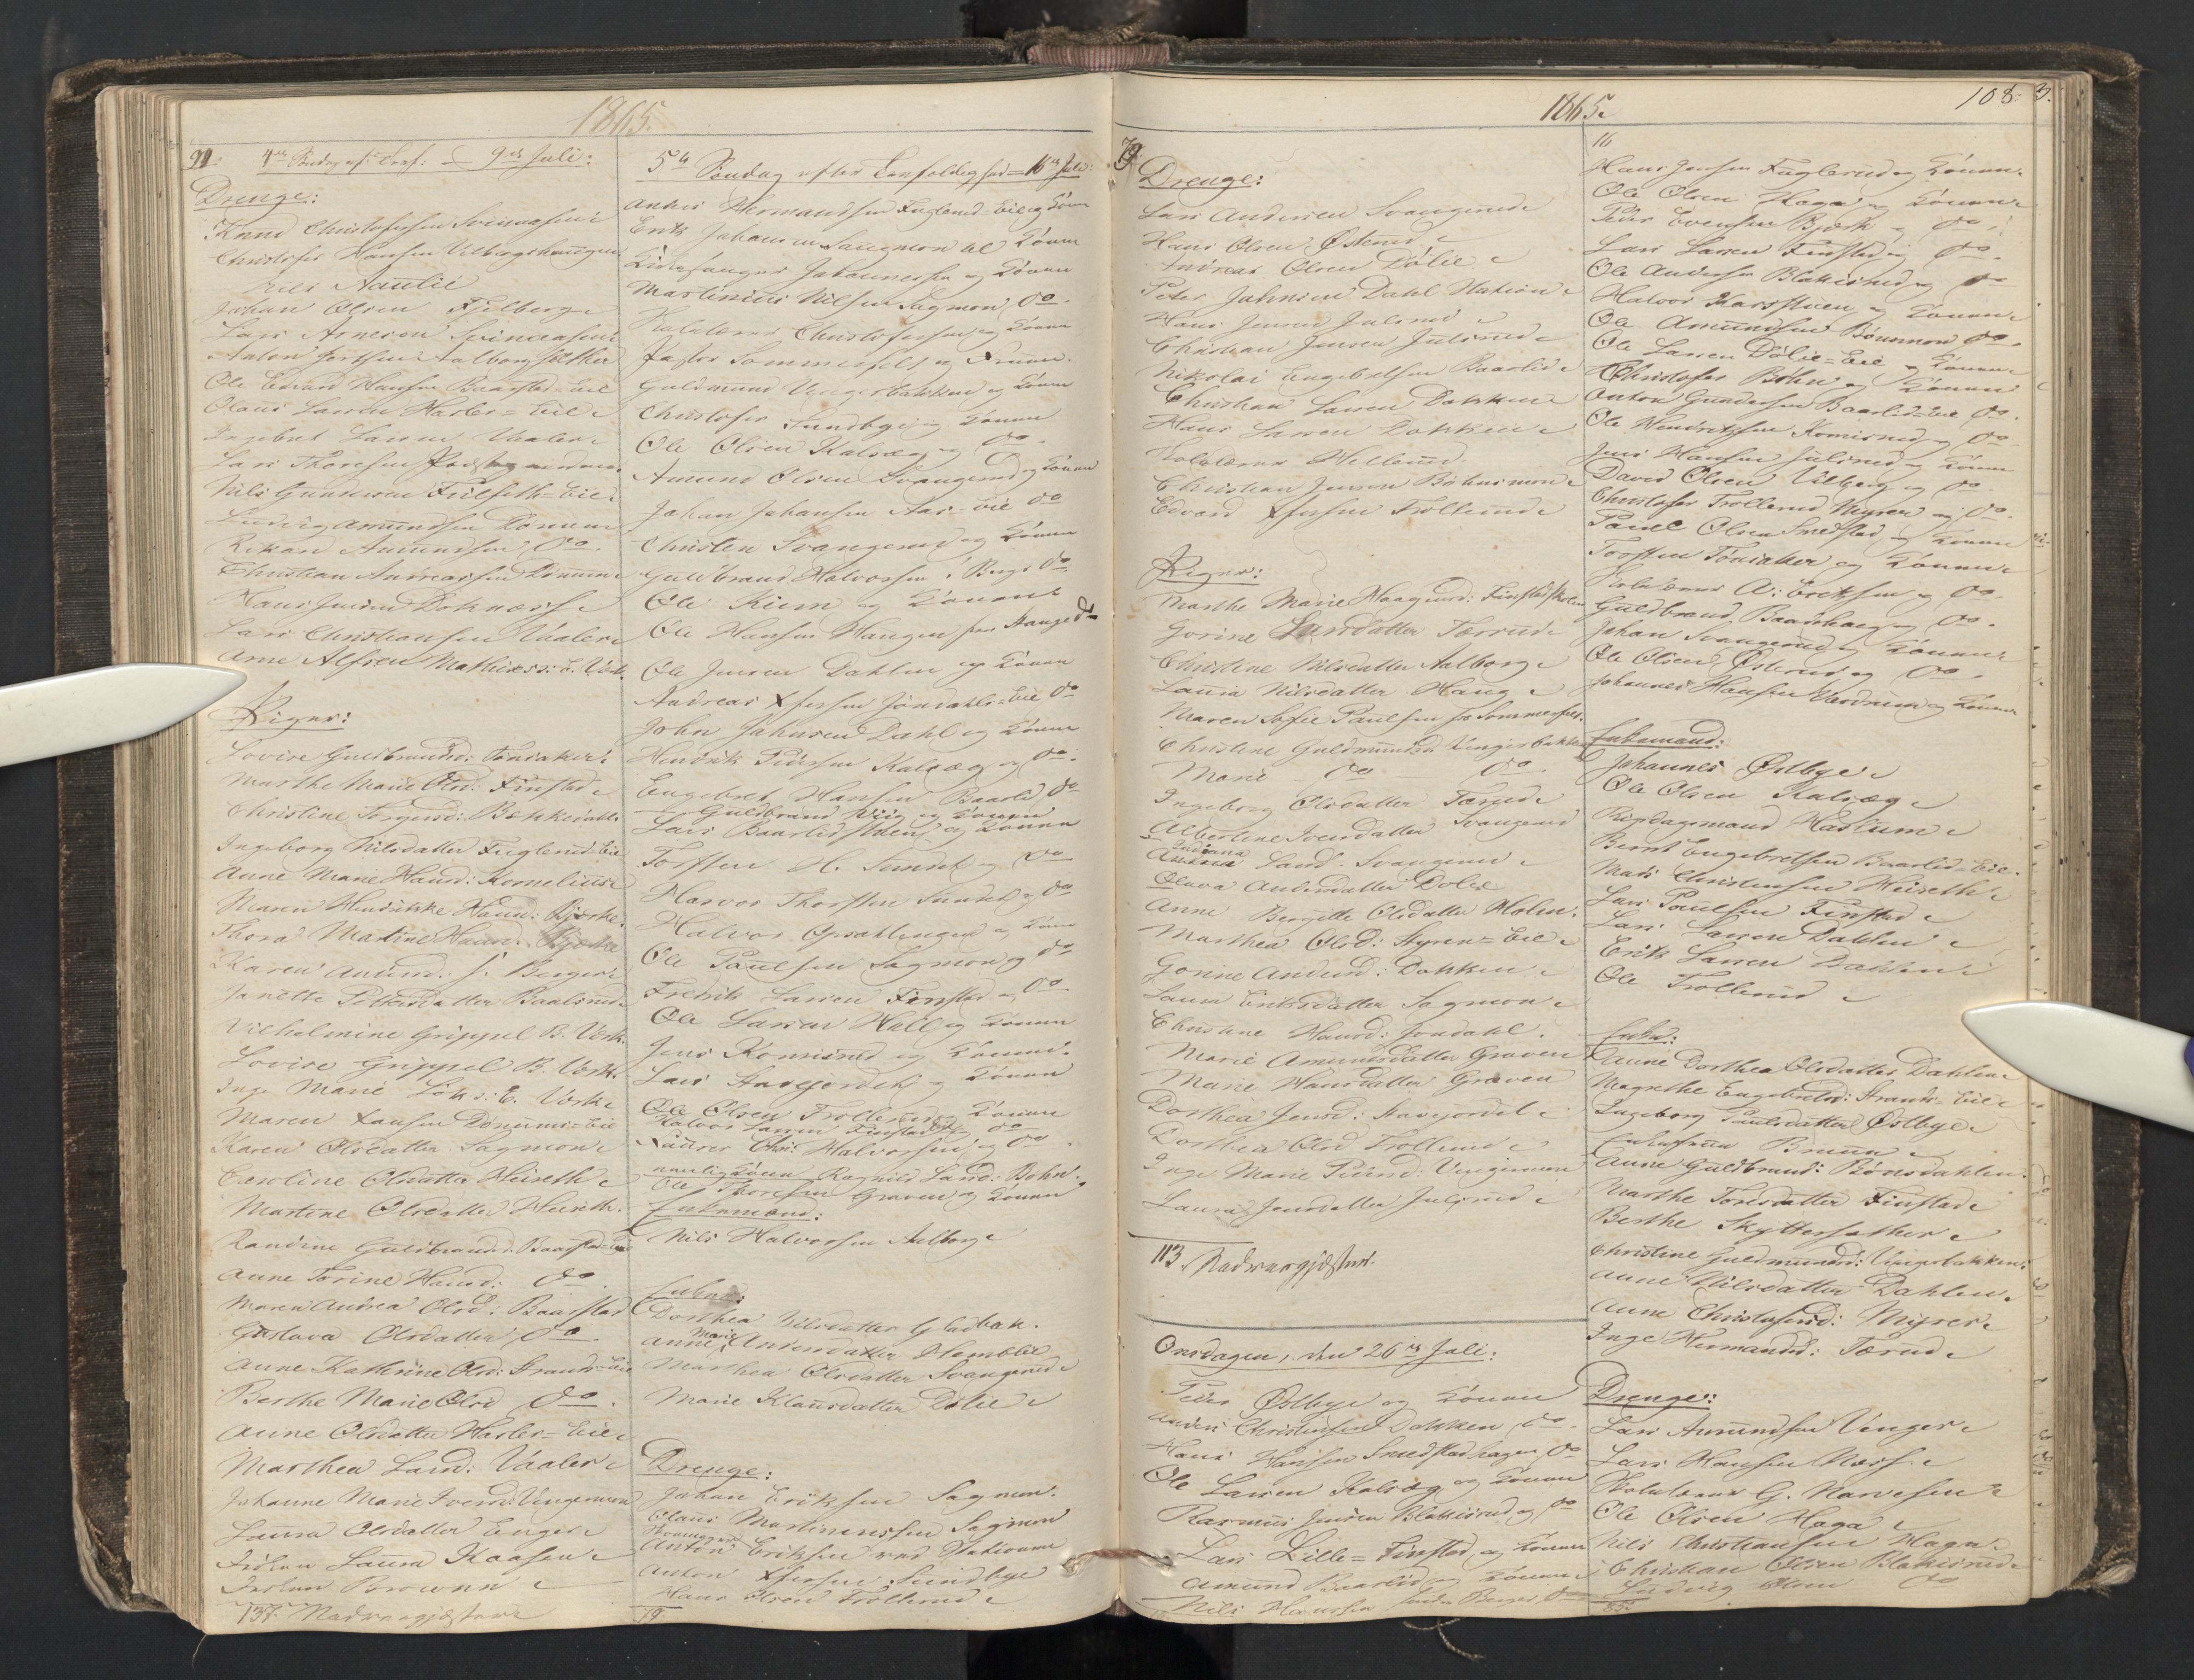 1865.
91. 4de Søndag ef: Tref: 9de Juli:
Drenge:
Knud Christofersen Svenaasen
Christofer Hansen Vilbergshaugen
Nils Aaulie
Johan Olsen Fjelberg
Lars Arnesen Svenaasen
Anton Aalborgsæther
Ole Edvard Hansen Baarstad-Eie
Olaus Larsen Hasler-Eie
Ingebret Larsen Vaaler
Lars Thoresen
Nils Gundersen Fulseth-Eie
Ludvig Amundsen Dønnum
Rikard Amundsen do.
Christian Andreassen Dønnum
Hans Jensen Doknæss
Lars Christiansen Vaaler
Arne Alfsen Mathies: E. Værk.
Piger:
Lovise Guldbrandsd: Tønsaker
Marthe Marie Olsd: Finstad
Christine Torgersd: Bækkedahl
Ingeborg Nilsdatter Fuglerud-Eie
Anne Marie Hansd: Kornelius
Maren Hendrikke Hansd: Bjørke
Thora Martine Hansd. Bjørke
Karen Amund: s. Berger
Janette Pettersdatter Baalsrud
Vilhelmine Grippel B. Værk.
Lovise Grippel B. Værk.
Inge Marie E. Værk
Maren Hansen Dønnum-Eie
Karen Olsdatter Sagmoen
Caroline Olsdatter Heiseth
Martine Olsdatter Heiseth.
Randine Guldbrandsd: Baarstad-Eie
Anne Torine Hansd: do.
Maren Andrea Olsd: Baarstad
Gustava Olsdatter do.
Anne Kathrine Olsd: Strands-Eie
Berthe Marie Olsd do.
Anne Olsdatter Hasler-Eie
Marthea Larsd: Vaaler
Johanne Marie Iversd: Vengermoen
Laura Olsdatter Enger
Frøken Laura Kaasen
Frøken
137. Nadvergjæster
5te Søndag efter Trefoldighed 16de Juli:
Anders Hermandsen Fuglerud-Eie og Konen
Erik Johansen Saugmoen og Konen
Kirkesanger Johannessen og Konen
Martinius Nilsen Sagmoen do.
Skolelærer Christofersen og Konen
Pastor Sommerfelt og Fruen.
Guldmund Vengerbakken og Konen
Christofer Sundbye og Konen
Ole Olsen Kalsæg og do.
Amund Olsen Svangerud og Konen
Johan Johansen Aas-Eie do
Christen Svangerud og Konen
Guldbrand Halvorsen i Berge do
Ole Riim og Konen
Ole Hansen Haugen fra Stange do
Ole Jensen Dahlen og Konen
Andreas Xfersen Jøndahls-Eie do
John Johnsen Dahl og Konen
Hendrik Pedersen Kalsæg og do.
Engebret Hansen Baarli do
Guldbrand Riis og Konen
Lars Baarlidstuen og Konen
Torsten H. Sundet og do
Halvor Thorsten Sundet og do
Halvor Opsahlengen og Konen
Ole Paulsen Sagmoen og do
Fredrik Larsen Finstad og do.
Ole Larsen Hall og Konen
Jens Komisrud og Konen.
Lars Stavejordet og Konen
Ole Olsen Trollerud og Konen
Halvor Larsen Finstad og do
Chr: Halvorsen og do.
nemlig Konen Ragnild Larsd: Bøhn.
Ole Thoresen Graven og Konen
Enkemænd:
Nils Halvorsen Aalborg
Enker:
Dorthea Nilsdatter Gladbak.
Anne Marie Andersdatter Stemblie
Marthea Olsdatter Svangerud
Marie Klausdatter Dølie
Drenge:
Johan Eriksen Sagmoen.
Olaus Martinussen Sagmoen
Anton Eriksen ved Stationen
Anton Xfersen Sundbye
Hans Olsen Trollerud
79
1865.
108. 3.
79
Drenge:
Lars Andersen Svangerud
Hans Olsen Østerud
Andreas Olsen Dølie
Peter Johnsen Dahl Station
Hans Jensen Julsrud
Christian Jensen Julsrud
Nikolai Engebretsen Baarlid
Christian Larsen Dokken
Hans Larsen Dokken
Skolelærer Hellerud
Christian Jensen Bøhnsmoen
Edvard Xfersen Trollerud
Piger:
Marthe Marie Haagensd: Finstadstuen
Gorine Larsdatter Tærrud
Christine Nilsdatter Aalborg
Laura Nilsdatter Haug
Maren Sofie Paulsen fr Sommerfelt.
Christine Guldmundsd Vengerbakken
Marie do do.
Ingeborg Olsdatter Tærud
Albertine Iversdatter Svangerud
Indiana
Larsd. Svangerud
Olava Andersdatter Dølie
Anne Bergitte Olsdatter Holen.
Marthea Olsd: Styren-Eie
Gorine Andersd: Dokken
Laura Eriksdatter Sagmoen
Christine Hansd: Jøndahl.
Marie Amundsdatter Graven
Marie Hansdatter Graven
Dorthea Jensd: Stavejordet
Dorthea Olsd Trollerud
Inge Marie Pedersd: Vengermoen
Laura Jensdatter Julsrud
113. Nadvergjæster.
Onsdagen, den 26de Juli:
Peder Østbye og Konen
Anders Christensen Dokken do.
Hans Hansen Smedstadhagen do
Ole Larsen Kalsæg og Konen
Rasmus Jensen Blakkisrud og do
Lars Lille-Finstad og Konen
Amund Baarlid og Konen
Nils Hansen søndre Berger do
16
Hans Jensen Fuglerud og Konen.
Ole Olsen Haga og Konen
Peder Evensen Bjørk og do.
Lars Larsen Finstad og do.
Ole Andersen Blakkisrud og do
Halvor Skarstuen og Konen
Ole Amundsen Bønsmoen do.
Ole Larsen Dølie-Eie og Konen
Christofer Bøhn og Konen
Anton Gundersen Baarlid-Eie do.
Ole Hendriksen Komisrud og do
Jens Hansen Julsrud og Konen
David Olsen Vilberg og do
Christofer Trollerud Myren og do.
Paul Olsen Smedstad og Konen
Torsten Tønsaker og Konen
Skolelærer A. Eriksen og do.
Guldbrand Baarshaug og do.
Johan Svangerud og Konen
Ole Olsen Østerud og do.
Johannes Hansen Værdrum og Konen
Enkemænd:
Johannes Østbye
Ole Olsen Kalsæg
Rigsdagsmand Haslum
Bernt Engebretsen Baarlid-Eie.
Mads Christensen Heiseth
Lars Paulsen Finstad
Lars Larsen Dahlen
Erik Larsen Dahlen
Ole Trollerud
Enker:
Anne Dorthea Olsdatter Dahlen
Magrethe Engebretsd: Strands-Eie
Ingeborg Paulsdatter Østbye
Enkefrue Bruun
Anne Guldbrand: Bønsdahlen.
Marthe Torsdatter Finstad
Berthe Skyttersæther
Christine Guldmunsd: Vengerbakken
Anne Nilsdatter Dahlen
Anne Christofersd: Myrer
Inge Hermandsd: Tærud
Drenge:
Lars Amundsen Venger
Lars Hansen Næss
Skolelærer G. Narvesen
Ole Olsen Haga
Nils Christiansen Haga
Christian Olsen Blakkisrud
Ludvig Olsen do
85